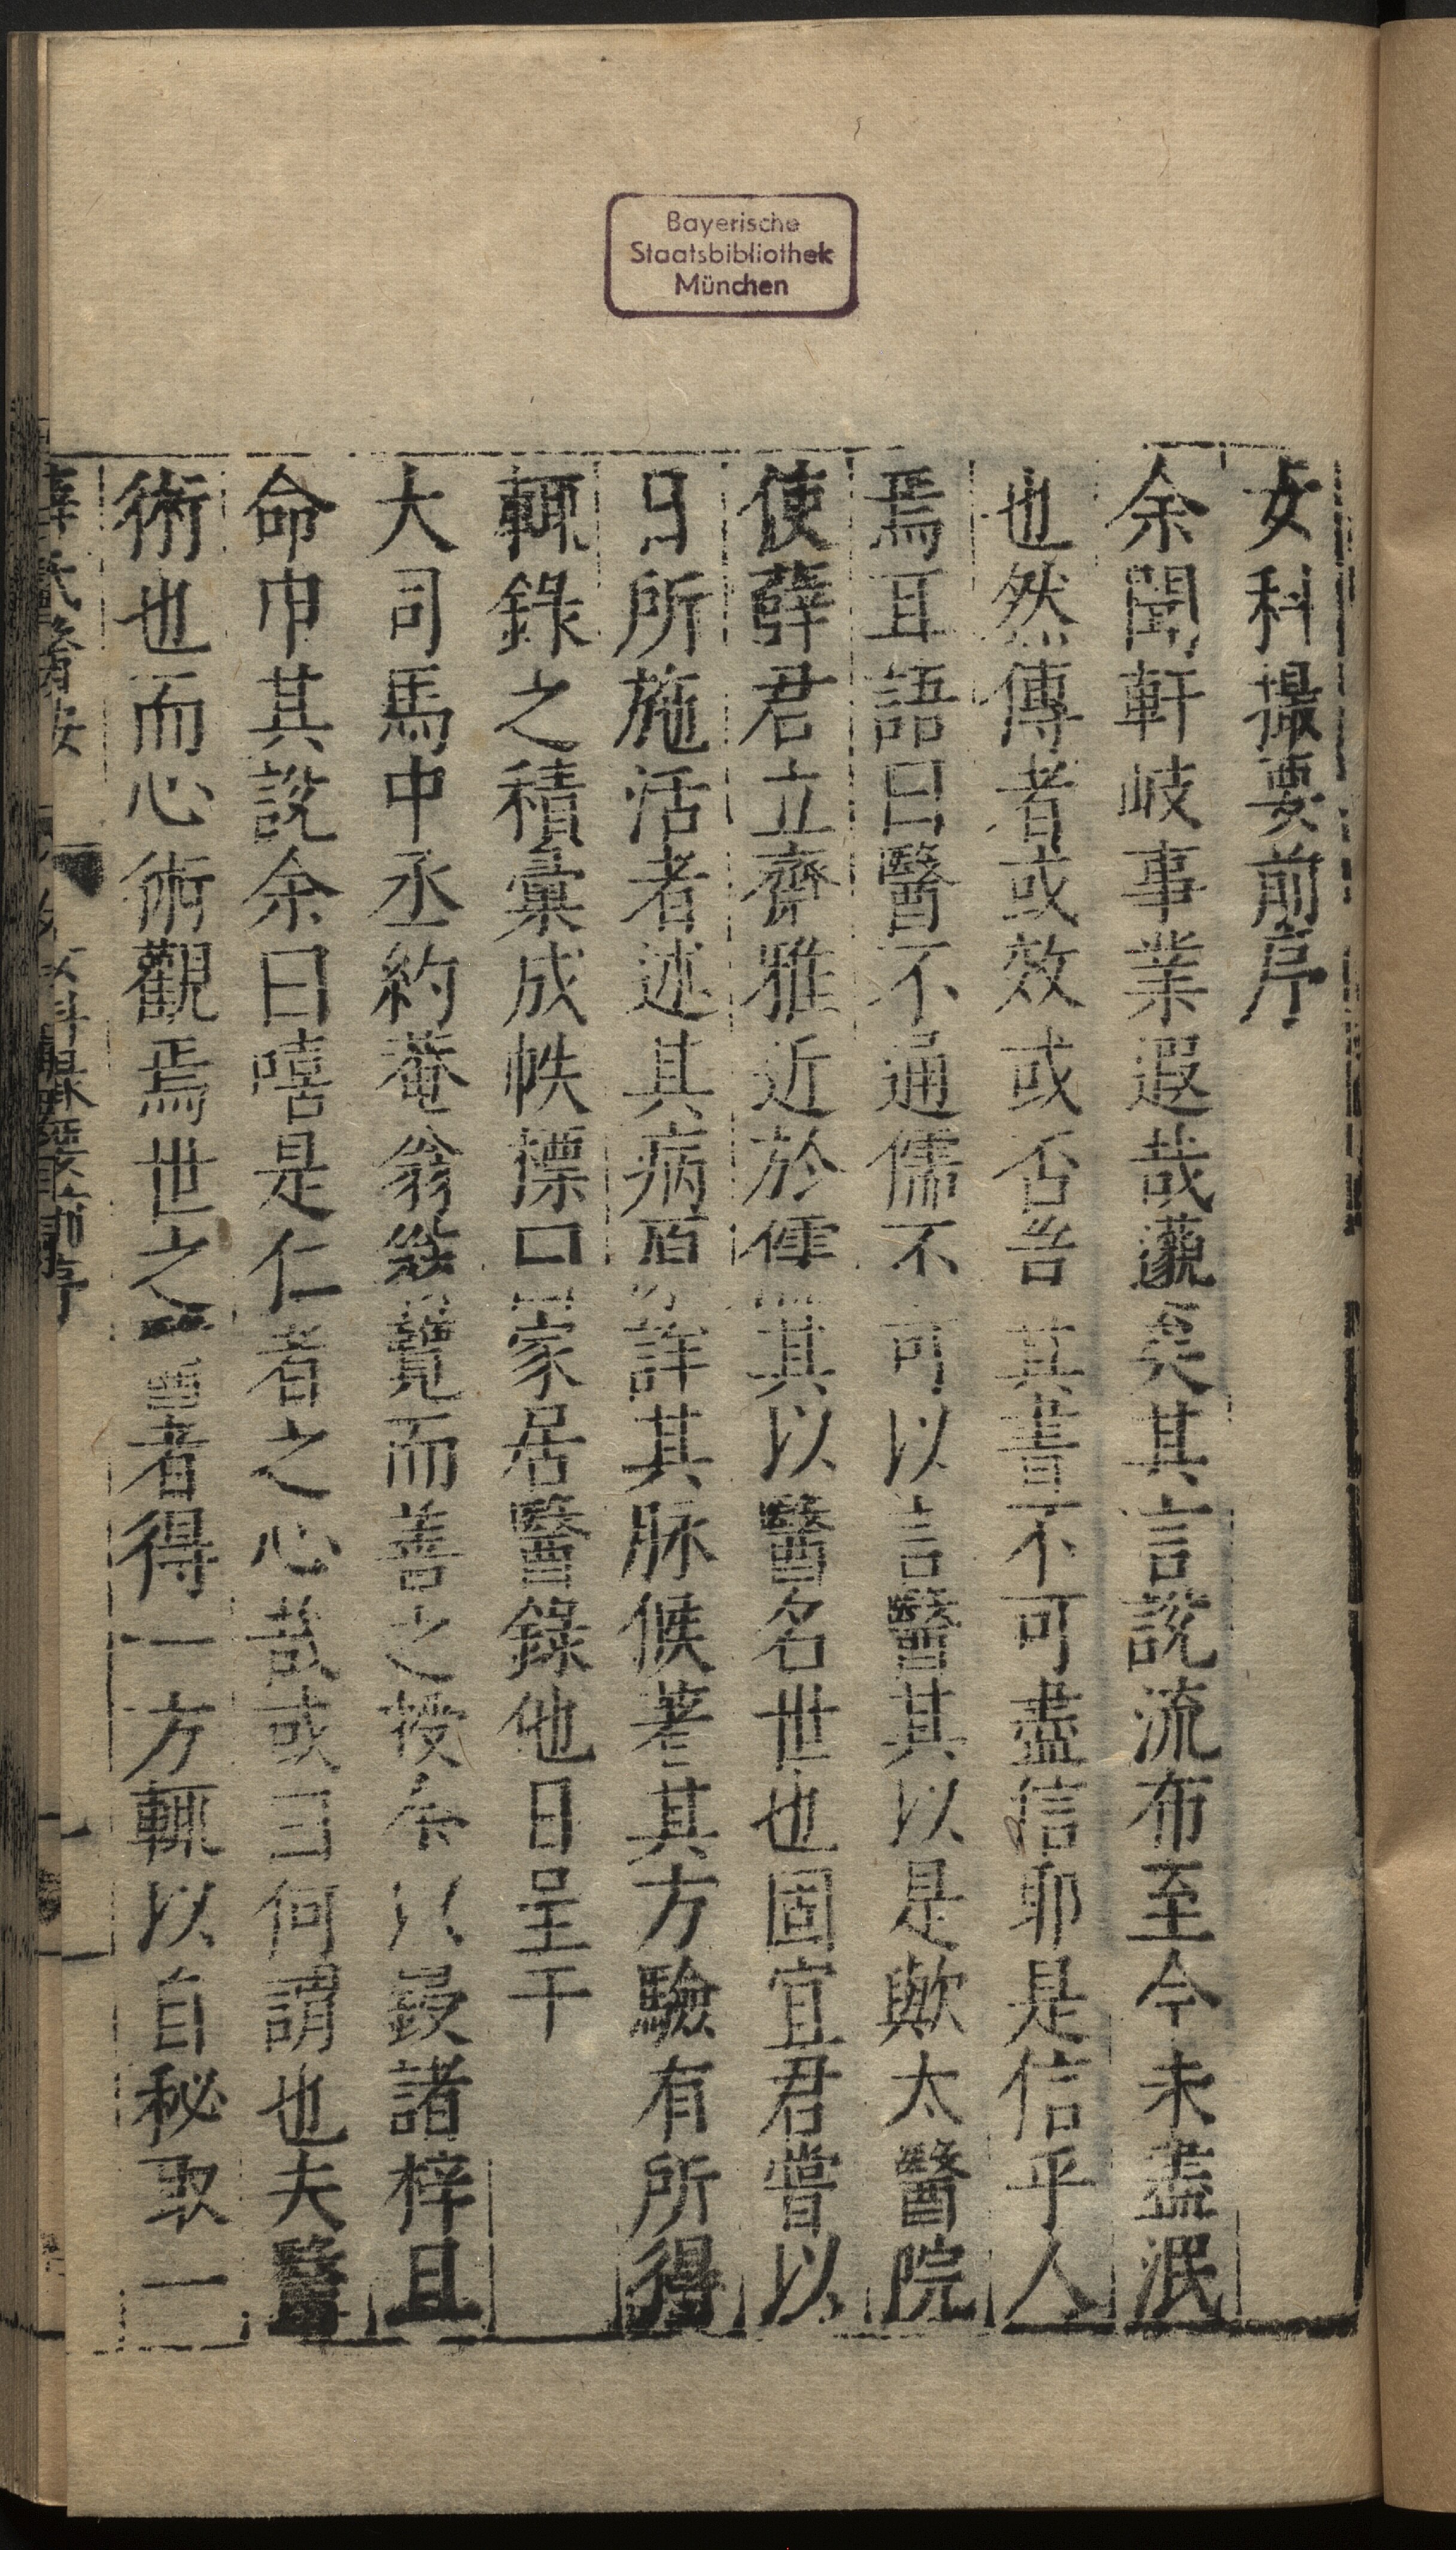 Bayerische
Staatsbibliothek
München
女科撮要前序
余聞軒岐事業遐哉邈矣其言說流布至今未盡泯
也然傳者或效或否咎其書不可盡信耶是信乎人
焉耳語曰醫不通儒不可以言醫其以是歟太醫院
使薛君立齋雅近於儒其以醫名世也固宜君嘗以
日所施活者述其病原詳其脉候著其方驗有所得
輒錄之積彙成帙標曰家居醫錄他日呈于
大司馬中丞約菴翁翁覽而善之授余以鋟諸梓且
命申其說余曰嘻是仁者之心哉或曰何謂也夫醫
術也而心術觀焉世之醫者得一方輒以自秘取一
薛氏醫按 女科撮要前序 一